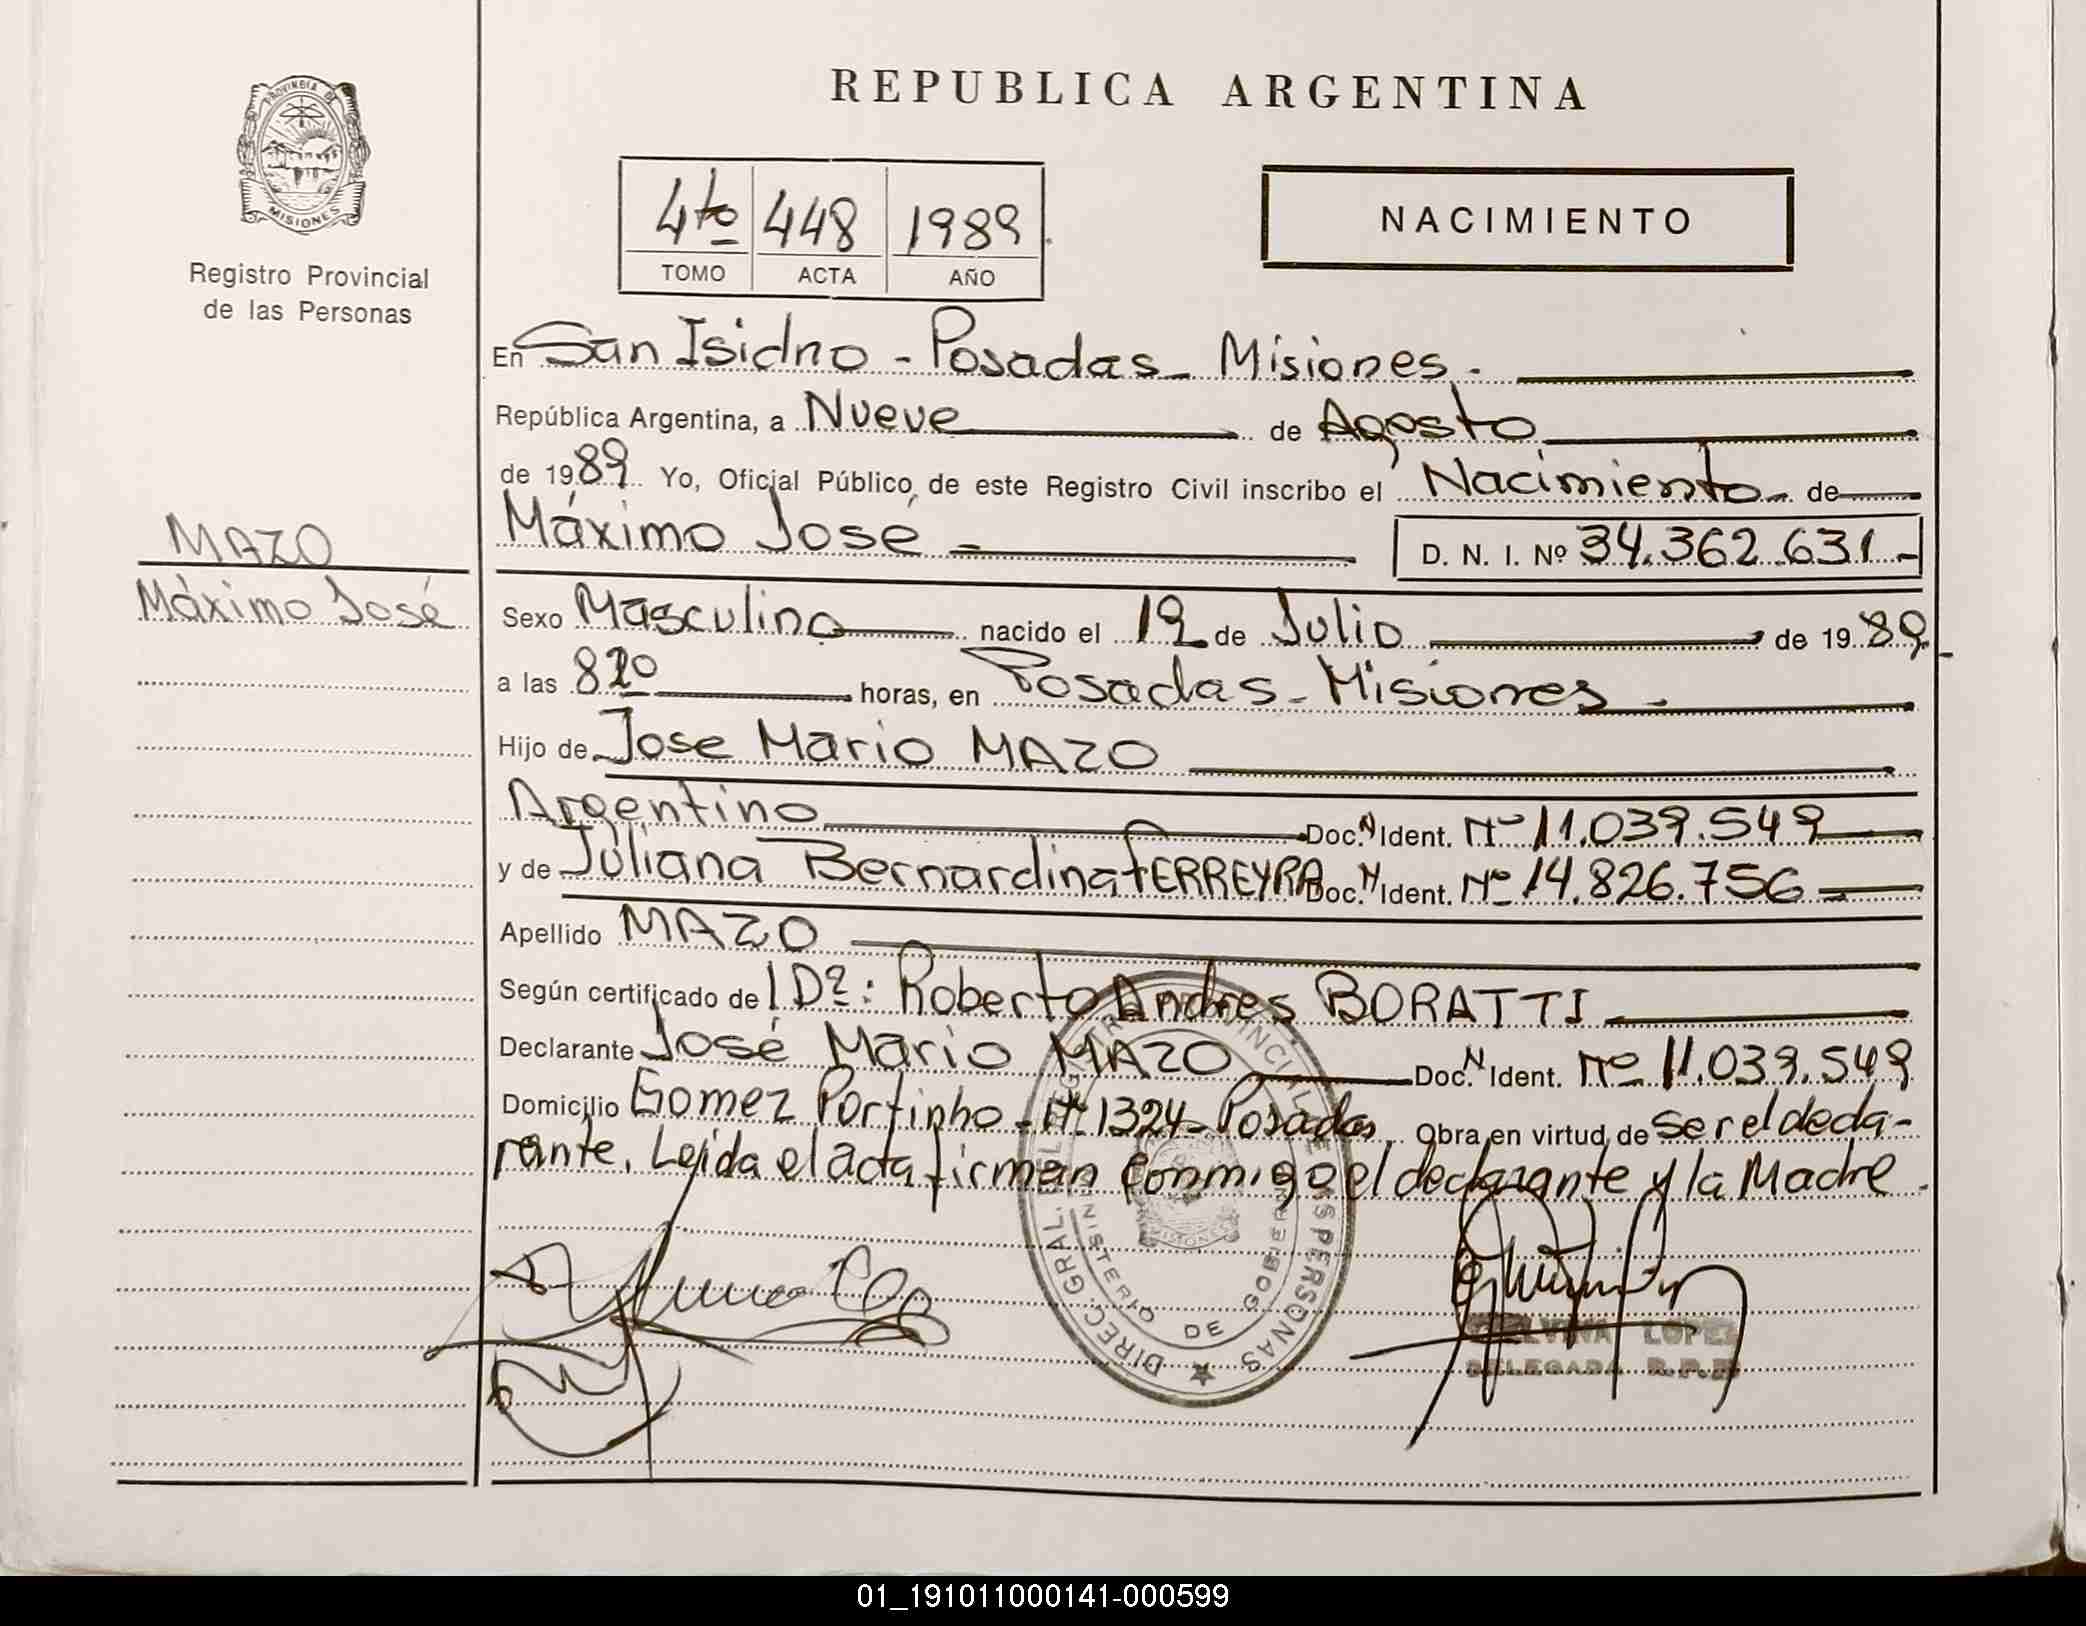 REPUBLICA ARGENTINA
PROVINCIA DE
MISIONES
Registro Provincial
de las Personas
4to 448 1989
TOMO ACTA AÑO
NACIMIENTO
En San Isidro - Posadas - Misiones.
República Argentina, a Nueve de Agosto
de 1989 Yo, Oficial Público, de este Registro Civil inscribo el Nacimiento de
MAZO
Máximo José
Máximo José - D. N. I. Nº 34.362.631.-
Sexo Masculino nacido el 12 de Julio de 1989.-
a las 820 horas, en Posadas - Misiones -
Hijo de Jose Mario MAZO
Argentino Doc. N Ident. Nº 11.039.549
y de Juliana Bernardina FERREYRA Doc. N Ident. Nº 14.826.756
Apellido MAZO
Según certificado de Roberto Andres BORATTI
Declarante José Mario MAZO Doc. N Ident. Nº 11.039.549
Domicilio Gomez Portinho - Nº 1324 - Posadas. Obra en virtud de ser el decla-
rante. Leída el acta firman conmigo el declarante y la Madre.
DIREC. GRAL. DEL REGISTRO PROVINCIAL DE LAS PERSONAS
MINISTERIO DE GOBIERNO
MISIONES
LOPEZ
DELEGADA R.P.P.
01_191011000141-000599